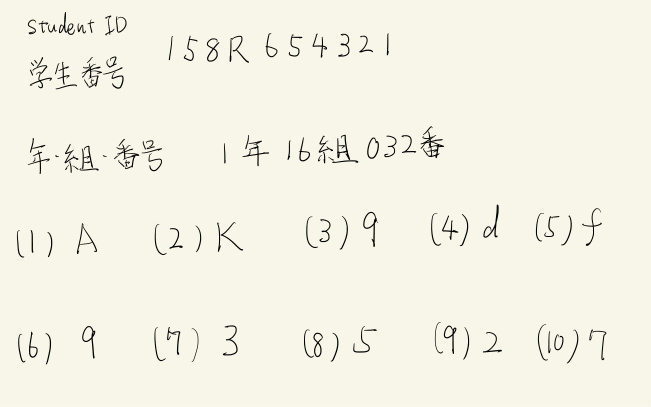 Student ID
学生番号 158R654321
年·組·番号 1年16組032番
(1) A (2) K (3) 9 (4) d (5) f
(6) 9 (7) 3 (8) 5 (9) 2 (10) 7